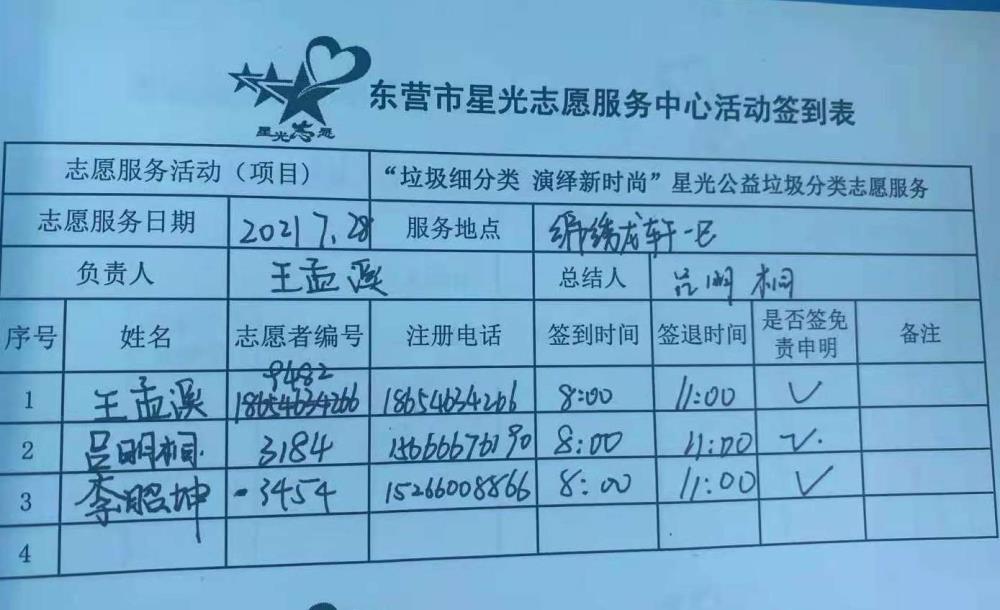 星光志愿
东营市星光志愿服务中心活动签到表
志愿服务活动（项目） “垃圾细分类 演绎新时尚”星光公益垃圾分类志愿服务
志愿服务日期 2021 7.28 服务地点 锦绣龙轩一区
负责人 王孟溪 总结人 吕明桐
序号 姓名 志愿者编号 注册电话 签到时间 签退时间 是否签免责申明 备注
9482
1 王孟溪 18654634266 18654634266 8:00 11:00 ✓
2 吕明桐 3184 15666676190 8:00 11:00 ✓
3 李昭坤 3454 15266008866 8:00 11:00 ✓
4